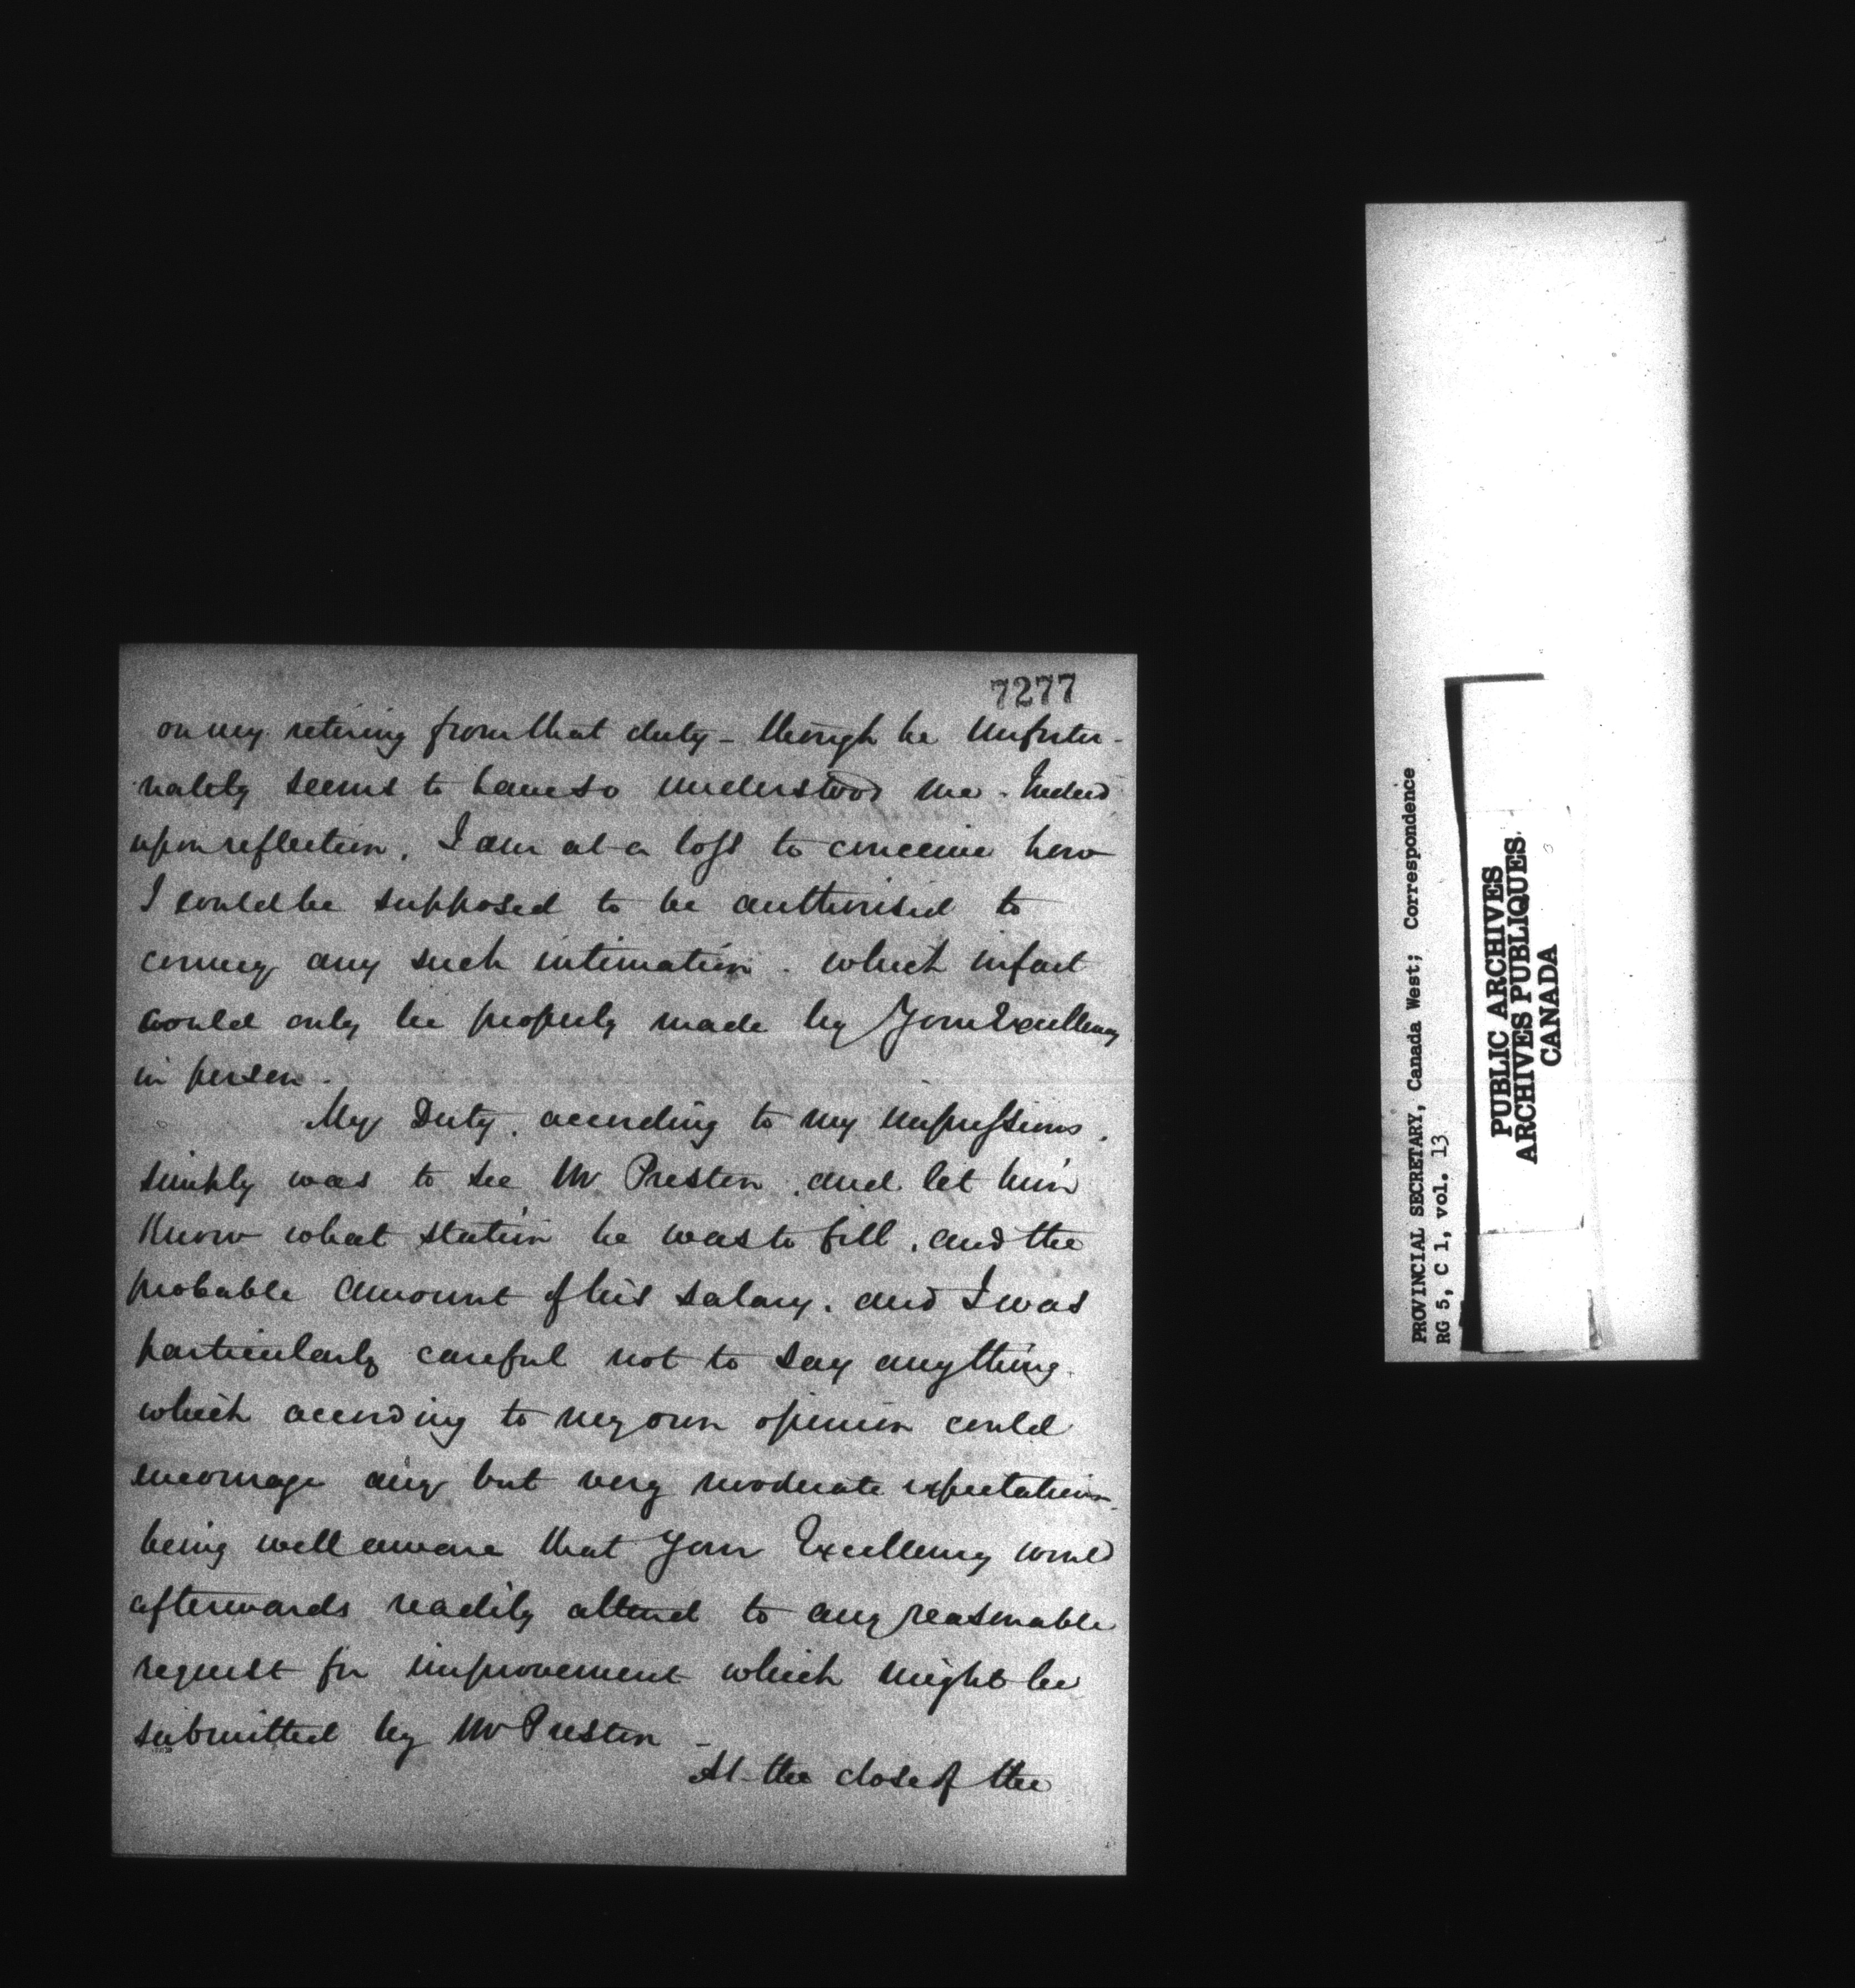 7277
on my retiring from that duty - though he unfortu-
nately seems to have so understood me - Indeed
upon reflection, I am at a loss to conceive how
I could be supposed to be authorised to
convey any such intimation - which in fact
could only be properly made by Your Excellency
in person -
My Duty, according to my impressions,
simply was to see Mr Preston, and let him
know what station he was to fill, and the
probable amount of his salary, and I was
particularly careful not to say anything
which according to my own opinion could
encourage any but very moderate expectations
being well aware that Your Excellency would
afterwards readily attend to any reasonable
request for improvement which might be
submitted by Mr Preston -
At the close of the
PROVINCIAL SECRETARY, Canada West; Correspondence
RG 5, C 1, vol. 13
PUBLIC ARCHIVES
ARCHIVES PUBLIQUES
CANADA